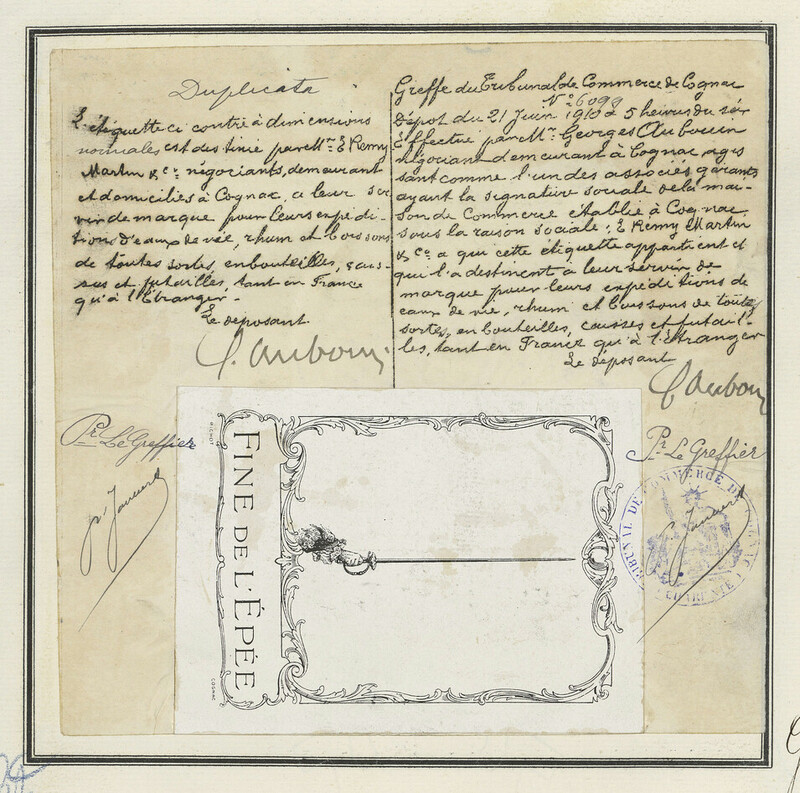 Duplicata
L'étiquette ci contre à dimensions
normales est destinée par Mr. E Remy
Martin & Cie négociants, demeurant
et domiciliés à Cognac, a leur ser
vir de marque pour leurs expédi-
tions d'eaux de vie, rhum et boissons
de toutes sortes, en bouteilles, cais-
ses et futailles, tant en France
qu'à l'Etranger -
Le déposant
G. Auboin
Pr Le Greffier
Greffe du Tribunal de Commerce de Cognac
No 6099
Dépôt du 21 Juin 1910 à 5 heures du soir
Effectué par Mr. Georges Auboin
négociant demeurant à Cognac, agis
sant comme l'un des associés gérants
ayant la signature sociale de la mai-
son de Commerce établie à Cognac
sous la raison sociale: E Remy Martin
& Cie a qui cette étiquette appartient et
qui l'a destinent a leur servir de
marque pour leurs expéditions de
eaux de vie, rhum et boissons de toutes
sortes, en bouteilles, caisses et futail-
les, tant en France qu'à l'Etranger
Le déposant
G Auboin
Pr Le Greffier
TRIBUNAL DE COMMERCE DE COGNAC
CHARENTE
FINE DE L'ÉPÉE
COGNAC